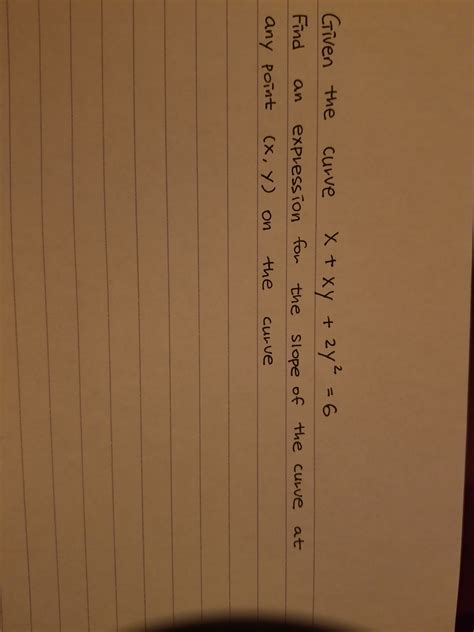 Given the curve x + xy + 2y² = 6
Find an expression for the slope of the curve at
any point (x, y) on the curve